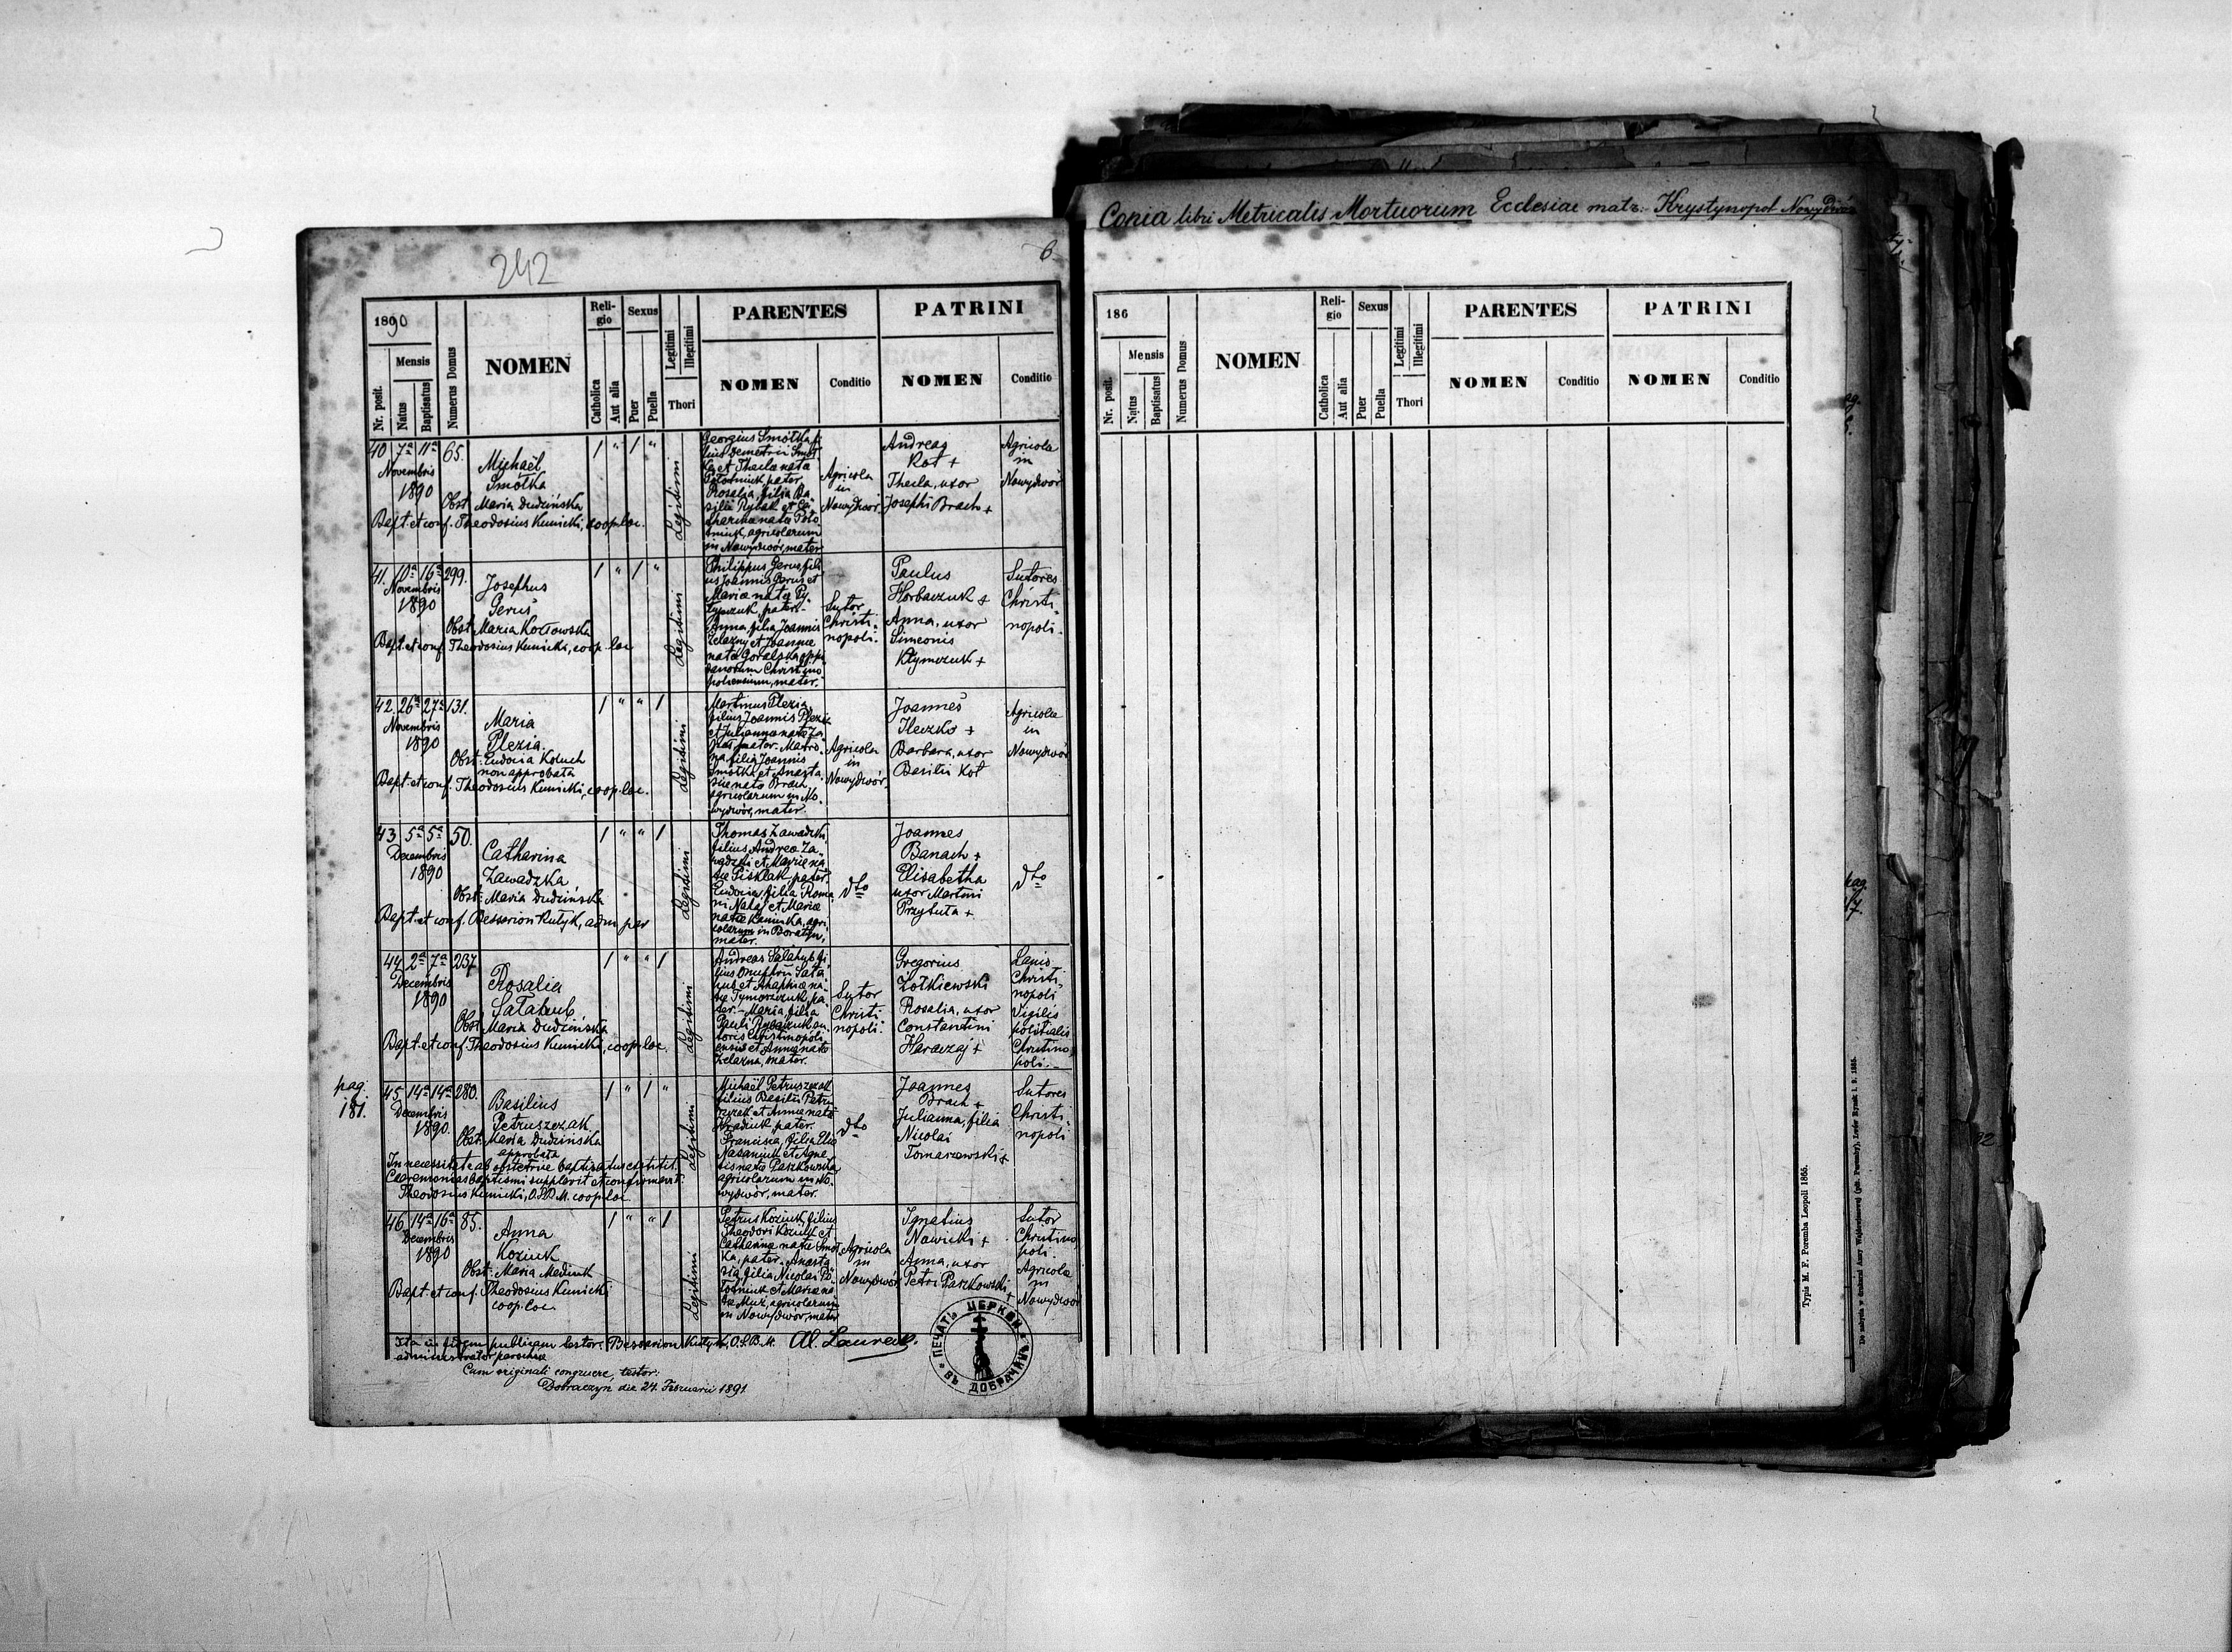 242
6
1890
Nr. posit.
Mensis
Natus
Baptisatus
Numerus Domus
NOMEN
Religio
Catholica
Aut alia
Sexus
Puer
Puella
Legitimi
Illegitimi
Thori
PARENTES
NOMEN
Conditio
PATRINI
NOMEN
Conditio
40 7a 11a 65.
Novembris
1890
Michaël
Smółka
Obst. Maria Dudzińska
Bapt. et conf. Theodosius Kunicki, coop. loc.
Legitimi
Georgius Smółka, fi-
lius Demetrii Smół-
ka et Theclae nata
pater
Rosalia, filia Ba-
silii Rybak et Ca-
tharinae nata
agricolarum
in Nowydwór, mater
Agricola
in
Nowydwór
Andreas
Kot +
Thecla, uxor
Josephi Brach +
Agricola
in
Nowydwór
41. 10a 16a 299.
Novembris
1890
Josephus
Geruś
Obst. Maria Kozłowska
Bapt. et conf. Theodosius Kunicki, coop. loc.
Legitimi
Philippus Geruś, fili-
us Joannis Geruś et
Mariae nata
pater.
Anna, filia Joannis
Żelazny et Joannae
nata Goralska, oppi-
danorum Christino-
poliensium, mater.
Sutor
Christi-
nopoli.
Paulus
Horbaczuk +
Anna, uxor
Simeonis
Klymczuk +
Sutores
Christi-
nopoli.
42. 26a 27a 131.
Novembris
1890
Maria
Plezia.
Obst. Eudocia Kotuch
non approbata
Bapt. et conf. Theodosius Kunicki, coop. loc.
Legitimi
Martinus Plezia,
filius Joannis Plezia
et Julianna nata
pater. Matro-
na filia Joannis
Smółka et Anasta-
siae nata Brach,
agricolarum in No-
wydwór, mater.
Agricola
in
Nowydwór.
Joannes
Ileczko +
Barbara, uxor
Basilii Kot
Agricolae
in
Nowydwór
43 5a 5a 50.
Decembris
1890
Catharina
Zawadzka
Obst. Maria Dudzińska
Bapt. et conf. Bessarion Kutyk, adm. par
Legitimi
Thomas Zawadzki
filius Andreae Za-
wadzki et Mariae na-
tae Pisklak, pater.
Eudocia, filia Roma-
ni et Mariae
natae agri-
colarum in Boratyn,
mater.
dto
Joannes
Banach +
Elisabetha
uxor Martini
Przybuta +
dto
44 2a 7a 237
Decembris
1890
Rosalia
Sałahub
Obst. Maria Dudzińska
Bapt. et conf. Theodosius Kunicki, coop. loc.
Legitimi
Andreas Sałahub fi-
lius Onuphrii Sała-
hub et Agaphiae na-
tae Tymoszczuk, pa-
ter. - Maria, filia
Pauli su-
toris Christinopoli-
ensis et Annae nata
Żelazna, mater.
Sutor
Christi-
nopoli.
Gregorius
Żółkiewski
Rosalia, uxor
Constantini
Haraczaj +
Lanio
Christi-
nopoli
Vigilis
politialis
Christino-
poli.
pag.
181.
45. 14a 14a 280.
Decembris
1890.
Basilius
Petruszczak.
Obst. Maria Dudzińska
approbata
In necessitate ab obstetrice baptisatus extitit.
Caeremonias baptismi supplevit et confirmavit:
Theodosius Kunicki, O.S.B.M. coop. loc.
Legitimi
Michaël Petruszczak
filius Basilii Petru-
szczak et Annae nata
pater.
Francisca, filia Eliae
Nasaniuk et Agne-
tis nata Paszkowska
agricolarum in No-
wydwór, mater.
dto
Joannes
Brach +
Julianna, filia
Nicolai
Tomaszewski +
Sutores
Christi-
nopoli
46. 14a 16a 85.
Decembris
1890
Anna
Koziuk
Obst. Maria Mediuch
Bapt. et conf. Theodosius Kunicki
coop. loc.
Legitimi
Petrus Koziuk, filius
Theodori Koziuk et
Catharinae nata Smół-
ka, pater. Anasta-
sia, filia Nicolai
et Mariae na-
tae Muz, agricolarum
in Nowydwór, mater
Agricola
in
Nowydwór
Ignatius
Nawicki +
Anna, uxor
Petri Paszkowski
+
Sutor
Christino-
poli.
Agricola
in
Nowydwór
Ita in fidem publicam testor. Bessarion Kutyk, O.S.B.M. Al. Laurecki.
administrator parochiae
Cum originali congruere, testor.
Dobraczyn die 24. Februarii 1891
ПЕЧАТЬ ЦЕРКВИ ВЪ ДОБРАЧИНѢ
Copia libri Metricalis Mortuorum Ecclesiae matr. Krystynopol Nowydwór
186
Nr. posit.
Mensis
Natus
Baptisatus
Numerus Domus
NOMEN
Religio
Catholica
Aut alia
Sexus
Puer
Puella
Legitimi
Illegitimi
Thori
PARENTES
NOMEN
Conditio
PATRINI
NOMEN
Conditio
Typis M. F. Poremba Leopoli 1865.